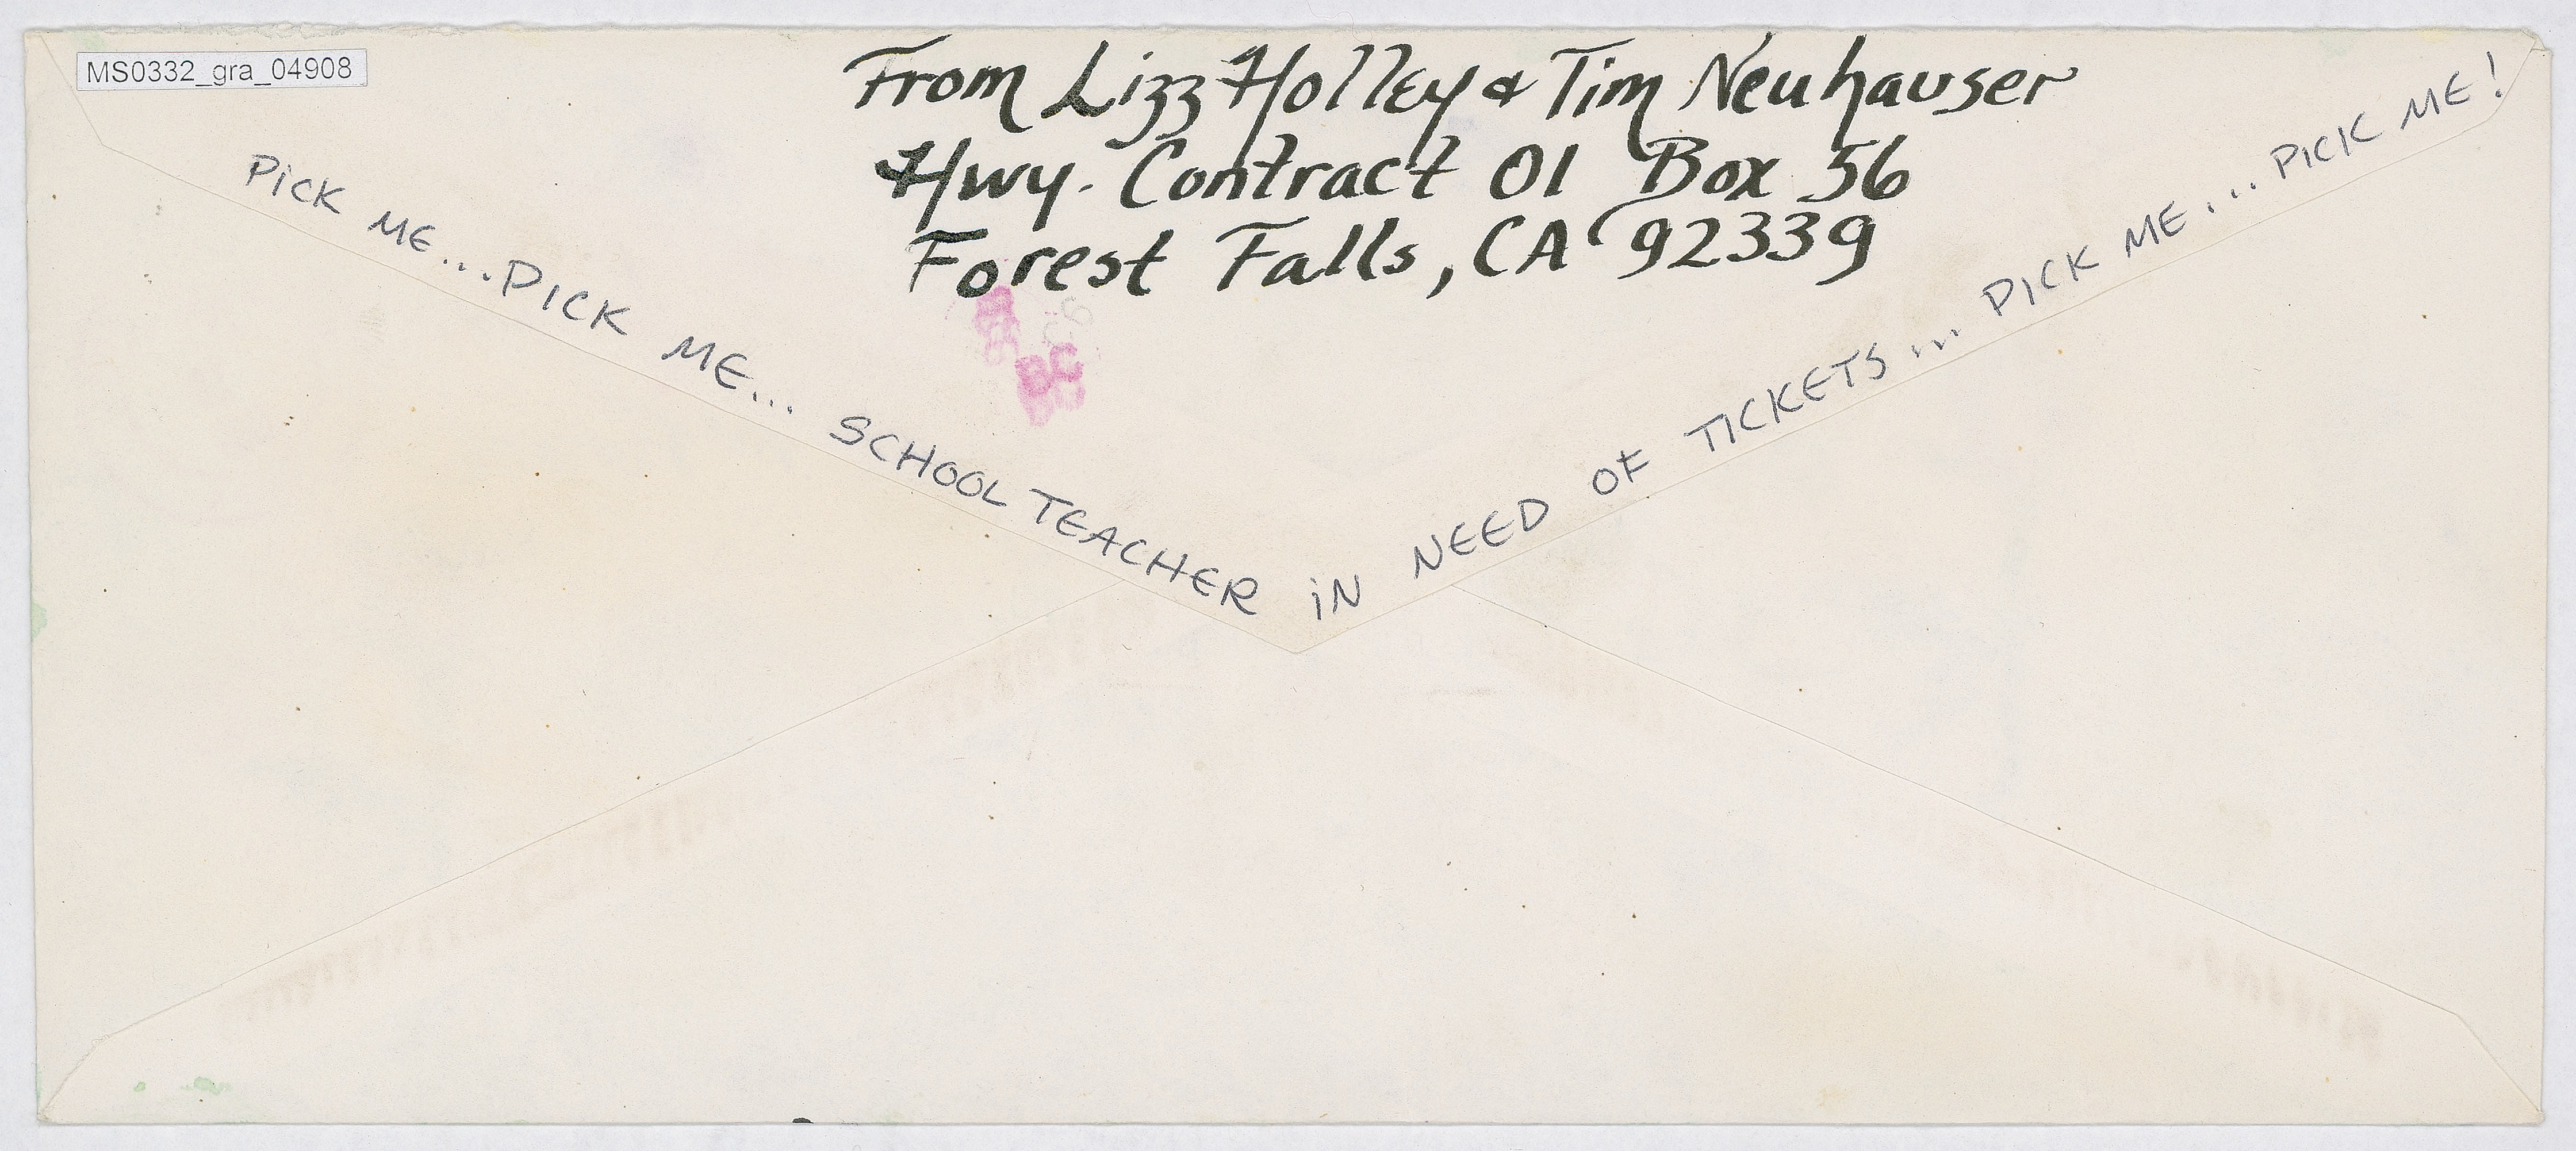 MS0332_gra_04908
From Lizz Holley & Tim Neuhauser
Hwy. Contract 01 Box 56
Forest Falls, CA 92339
BC
PICK ME... PICK ME... SCHOOL TEACHER IN NEED OF TICKETS... PICK ME... PICK ME!